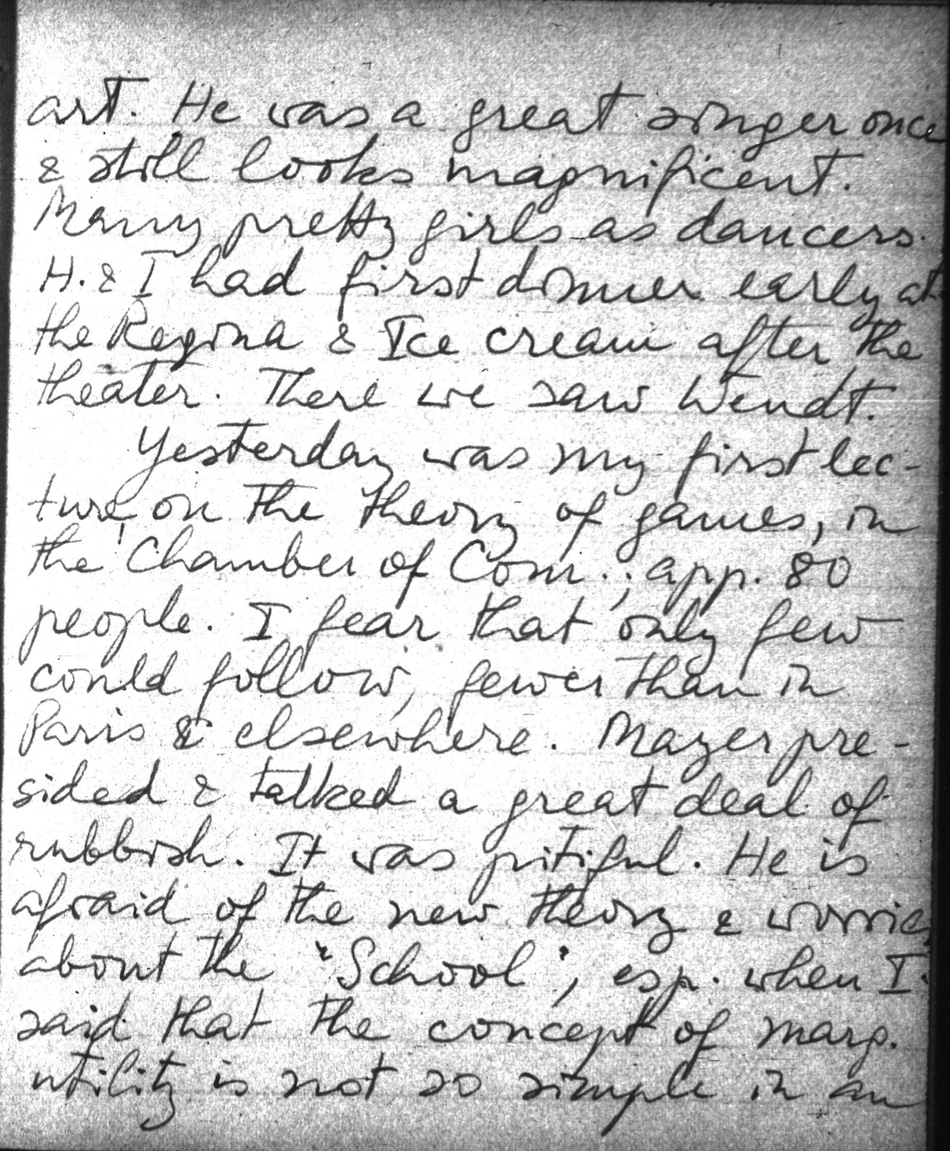 art. He was a great singer once
& still looks magnificent.
Many pretty girls as dancers.
H. & I had first dinner early at
the Regina & Ice cream after the
theater. There we saw Wendt.
Yesterday was my first lec-
ture, on the theory of games, in
the Chamber of Com.; app. 80
people. I fear that only few
could follow, fewer than in
Paris & elsewhere. Mayer pre-
sided & talked a great deal of
rubbish. It was pitiful. He is
afraid of the new theory & worries
about the "School", esp. when I
said that the concept of marg.
utility is not so simple in an